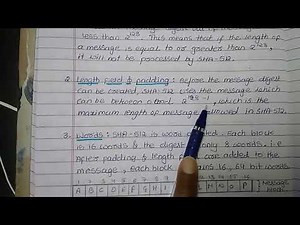 less than 2^128. This means that if the length of
a message is equal to or greater than 2^128, it
will not be processed by SHA-512.
2. Length Field & Padding: Before the message digest
can be created, SHA-512 uses the message which
can be between 0 and 2^128-1, which is the
maximum length of message allowed in SHA-512.
3. Words: SHA-512 is word Each block
is 16 words & the digest only 8 words. i.e
after padding & length field are added to
the message, each block 16, 64 bit words.
1 2 3 4 5 6 7 8 9 10 11 12 13 14 15 16
A B C D E F G H I J K L M N O P Message